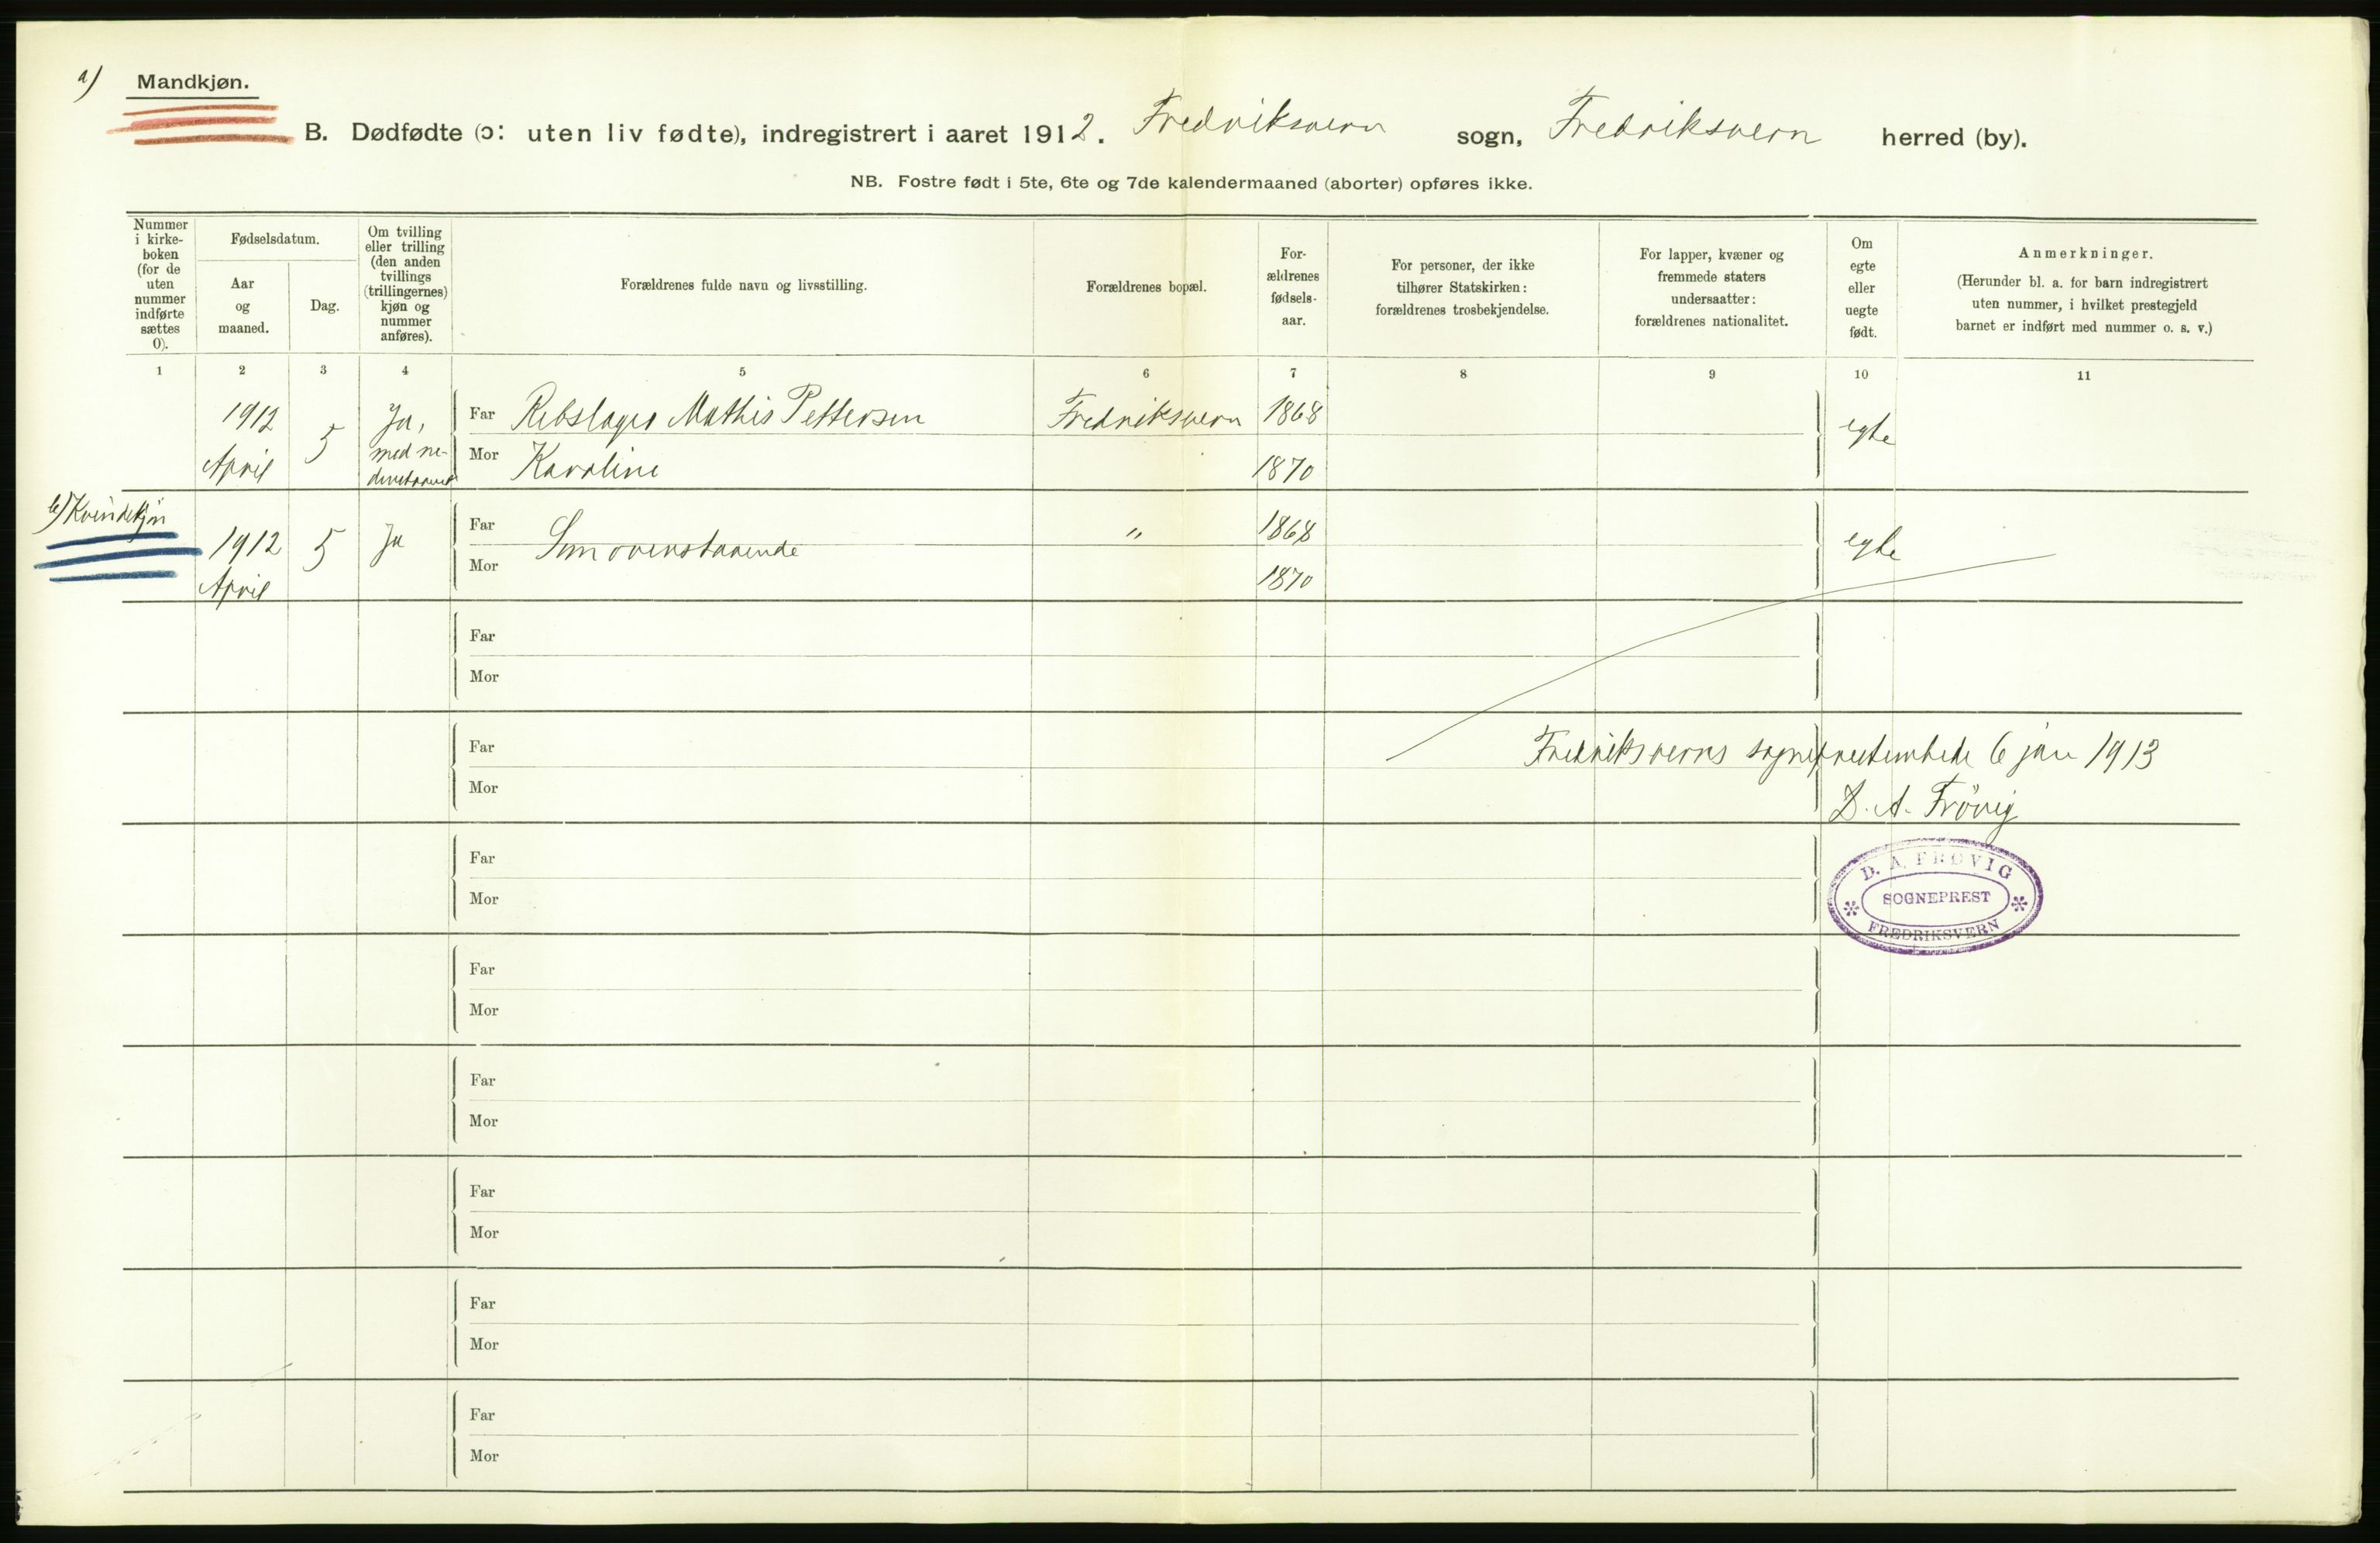 a) Mandkjøn.
B. Dødfødte (ɔ: uten liv fødte), indregistrert i aaret 1912. Fredriksvern sogn, Fredriksvern herred (by).
NB. Fostre født i 5te, 6te og 7de kalendermaaned (aborter) opføres ikke.
Nummer
i kirke-
boken
(for de
uten
nummer
indførte
sættes
0).
Fødselsdatum.
Aar
og
maaned.
Dag.
Om tvilling
eller trilling
(den anden
tvillings
(trillingernes)
kjøn og
nummer
anføres).
Forældrenes fulde navn og livsstilling.
Forældrenes bopæl.
For-
ældrenes
fødsels-
aar.
For personer, der ikke
tilhører Statskirken:
forældrenes trosbekjendelse.
For lapper, kvæner og
fremmede staters
undersaatter:
forældrenes nationalitet.
Om
egte
eller
uegte
født.
Anmerkninger.
(Herunder bl. a. for barn indregistrert
uten nummer, i hvilket prestegjeld
barnet er indført med nummer o. s. v.)
1 2 3 4 5 6 7 8 9 10 11
1912
April
5
Ja,
med ne-
denstaaende
Far Rebslager Mathis Pettersen Fredriksvern 1868
Mor Karoline 1870
egte
b) Kvindekjøn
1912
April
5
Ja
Far
Som ovenstaaende
Mor
" 1868
1870
egte
Far
Mor
Far
Mor
Fredriksverns sogneprestembede 6 jan 1913
D. A. Frövig
D. A. FRØVIG
SOGNEPREST
FREDRIKSVERN
Far
Mor
Far
Mor
Far
Mor
Far
Mor
Far
Mor
Far
Mor